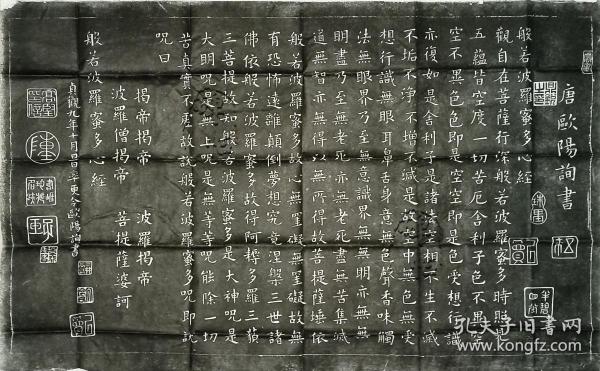 唐歐陽詢書
般若波羅蜜多心經
觀自在菩薩行深般若波羅蜜多時照見
五蘊皆空度一切苦厄舍利子色不異空
空不異色色即是空空即是色受想行識
亦復如是舍利子是諸法空相不生不滅
不垢不淨不增不減是故空中無色無受
想行識無眼耳鼻舌身意無色聲香味觸
法無眼界乃至無意識界無無明亦無無
明盡乃至無老死亦無老死盡無苦集滅
道無智亦無得以無所得故菩提薩埵依
般若波羅蜜多故心無罣礙無罣礙故無
有恐怖遠離顛倒夢想究竟涅槃三世諸
佛依般若波羅蜜多故得阿耨多羅三藐
三菩提故知般若波羅蜜多是大神呪是
大明呪是無上呪是無等等呪能除一切
苦真實不虛故說般若波羅蜜多呪即說
呪曰
揭帝揭帝 波羅揭帝
波羅僧揭帝 菩提薩婆訶
般若波羅蜜多心經
貞觀九年十月旦率更令歐陽詢書
孔夫子旧书网
www.kongfz.com